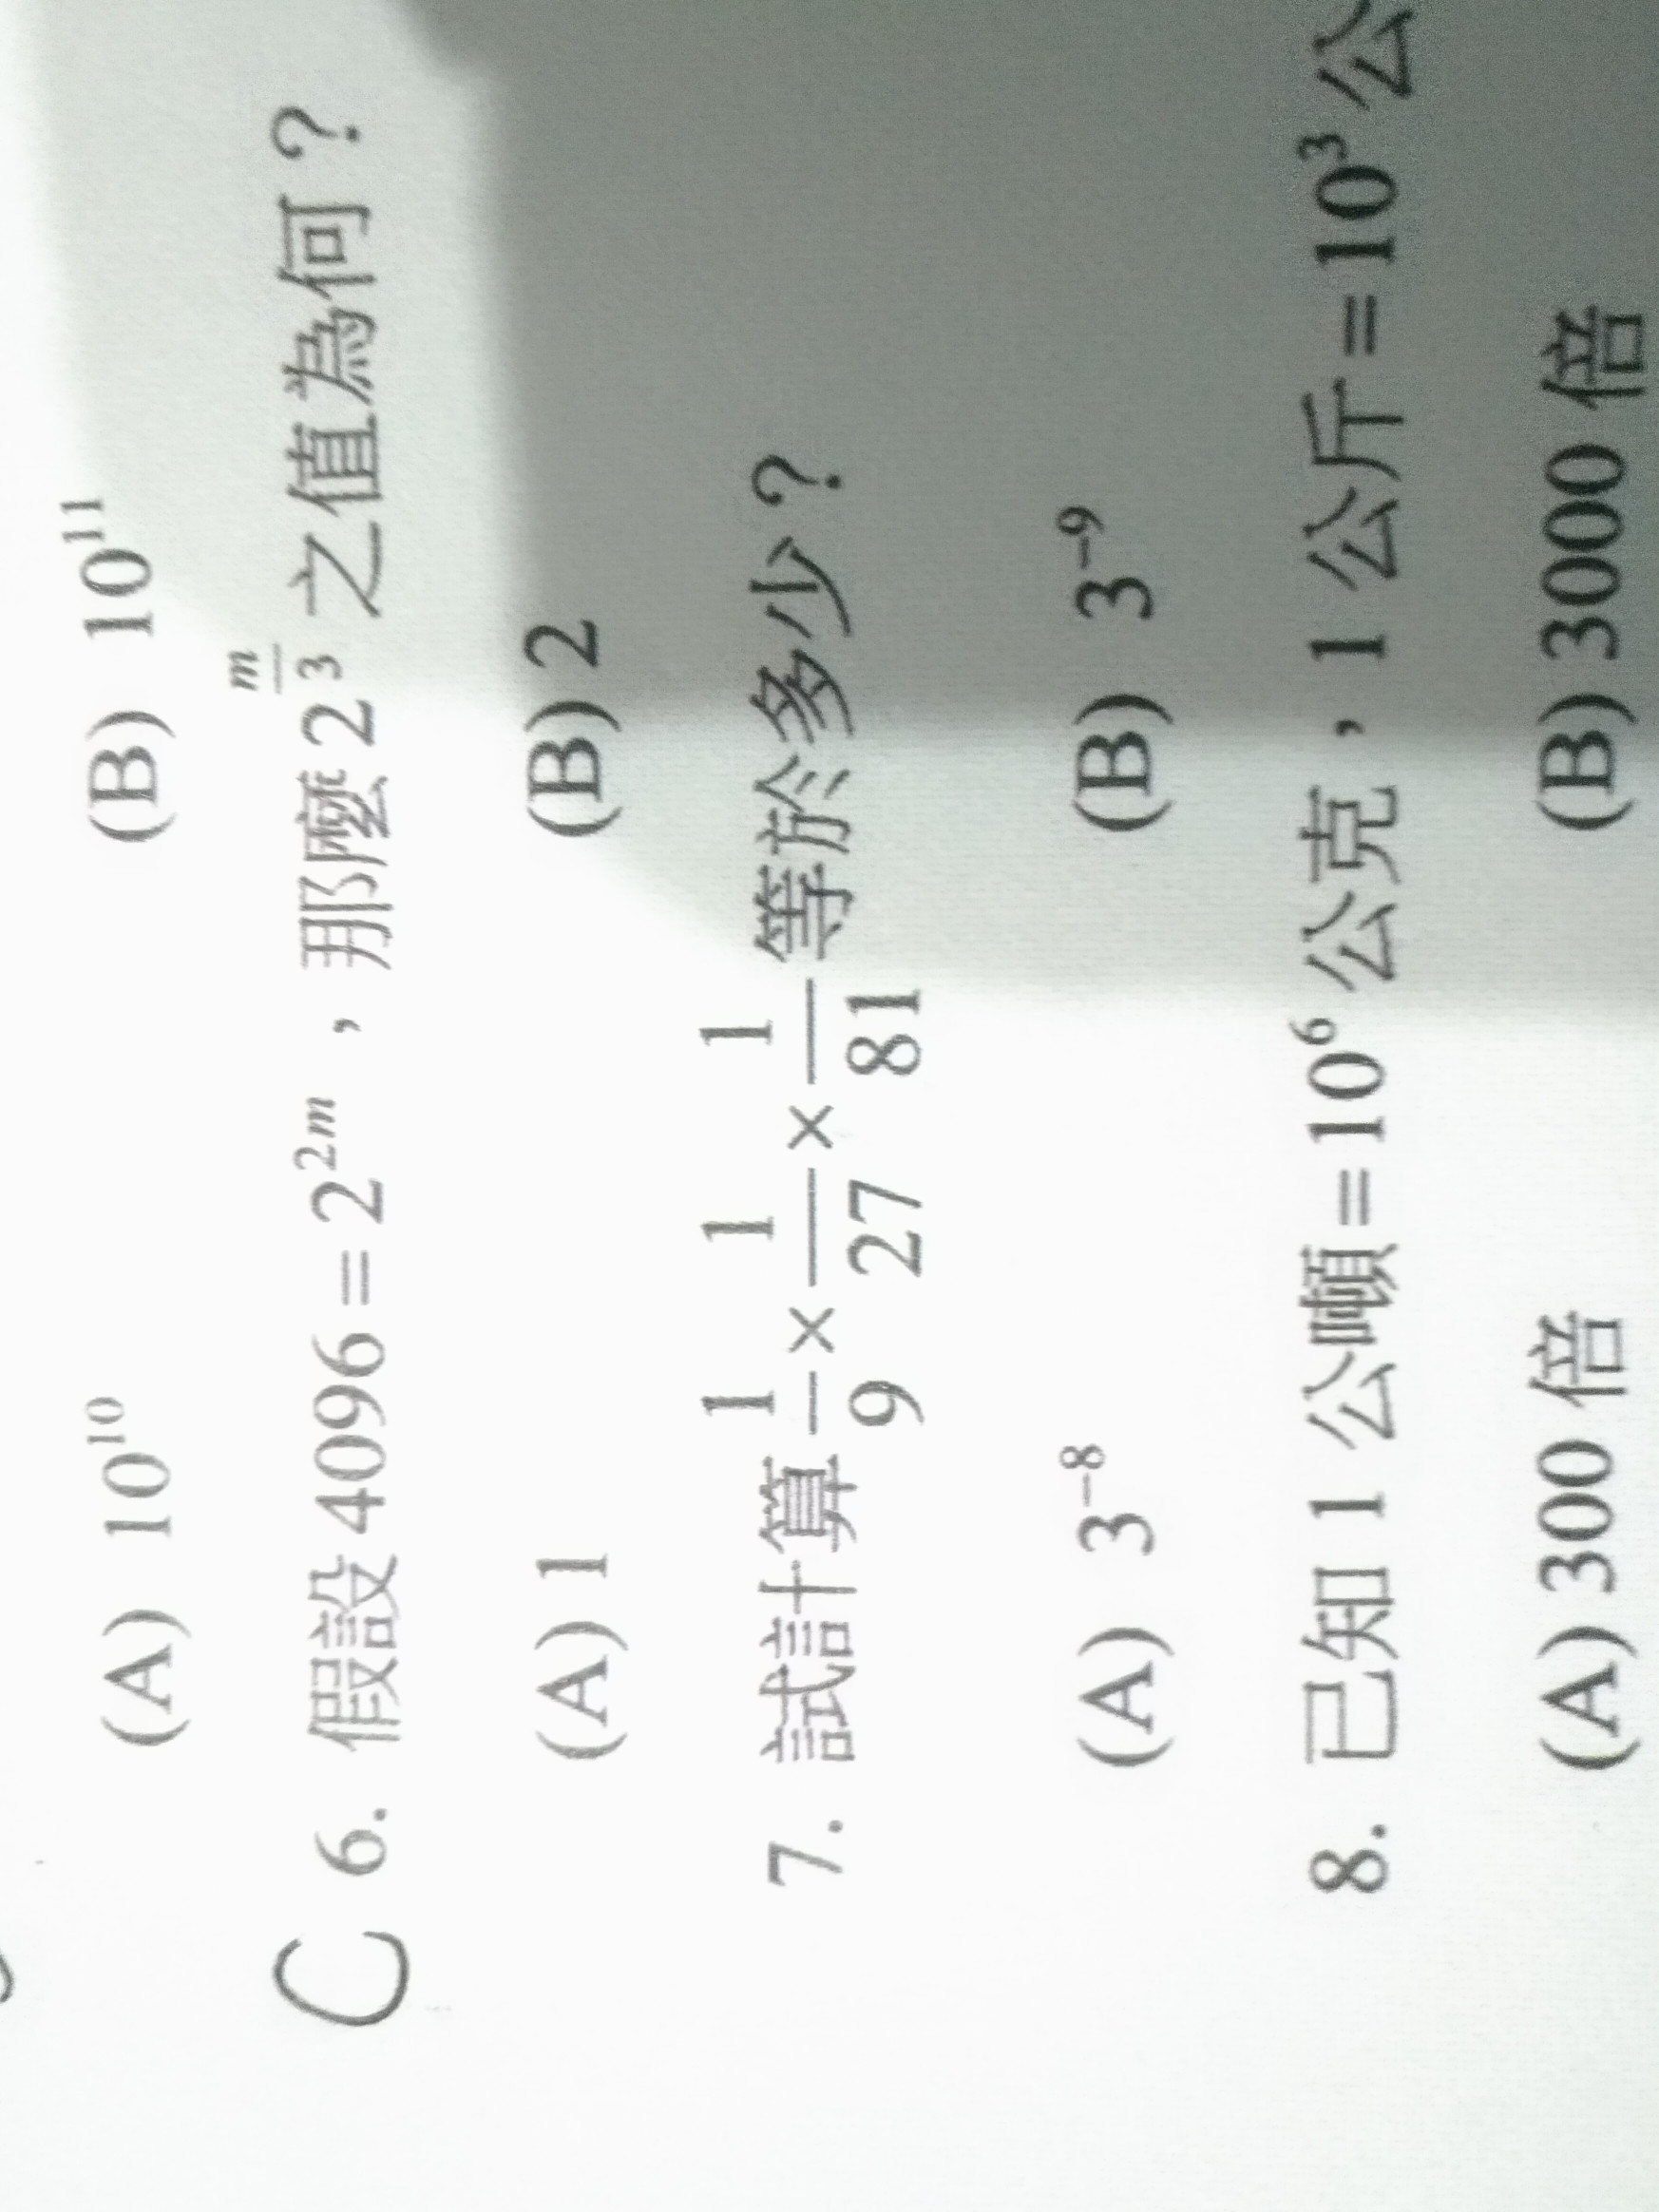 (A) 10¹⁰ (B) 10¹¹
C 6. 假設 4096 = 2²ᵐ，那麼 2^(m/3) 之值為何？
(A) 1 (B) 2
7. 試計算 1/9 × 1/27 × 1/81 等於多少？
(A) 3⁻⁸ (B) 3⁻⁹
8. 已知 1 公噸 = 10⁶ 公克，1 公斤 = 10³ 公
(A) 300 倍 (B) 3000 倍